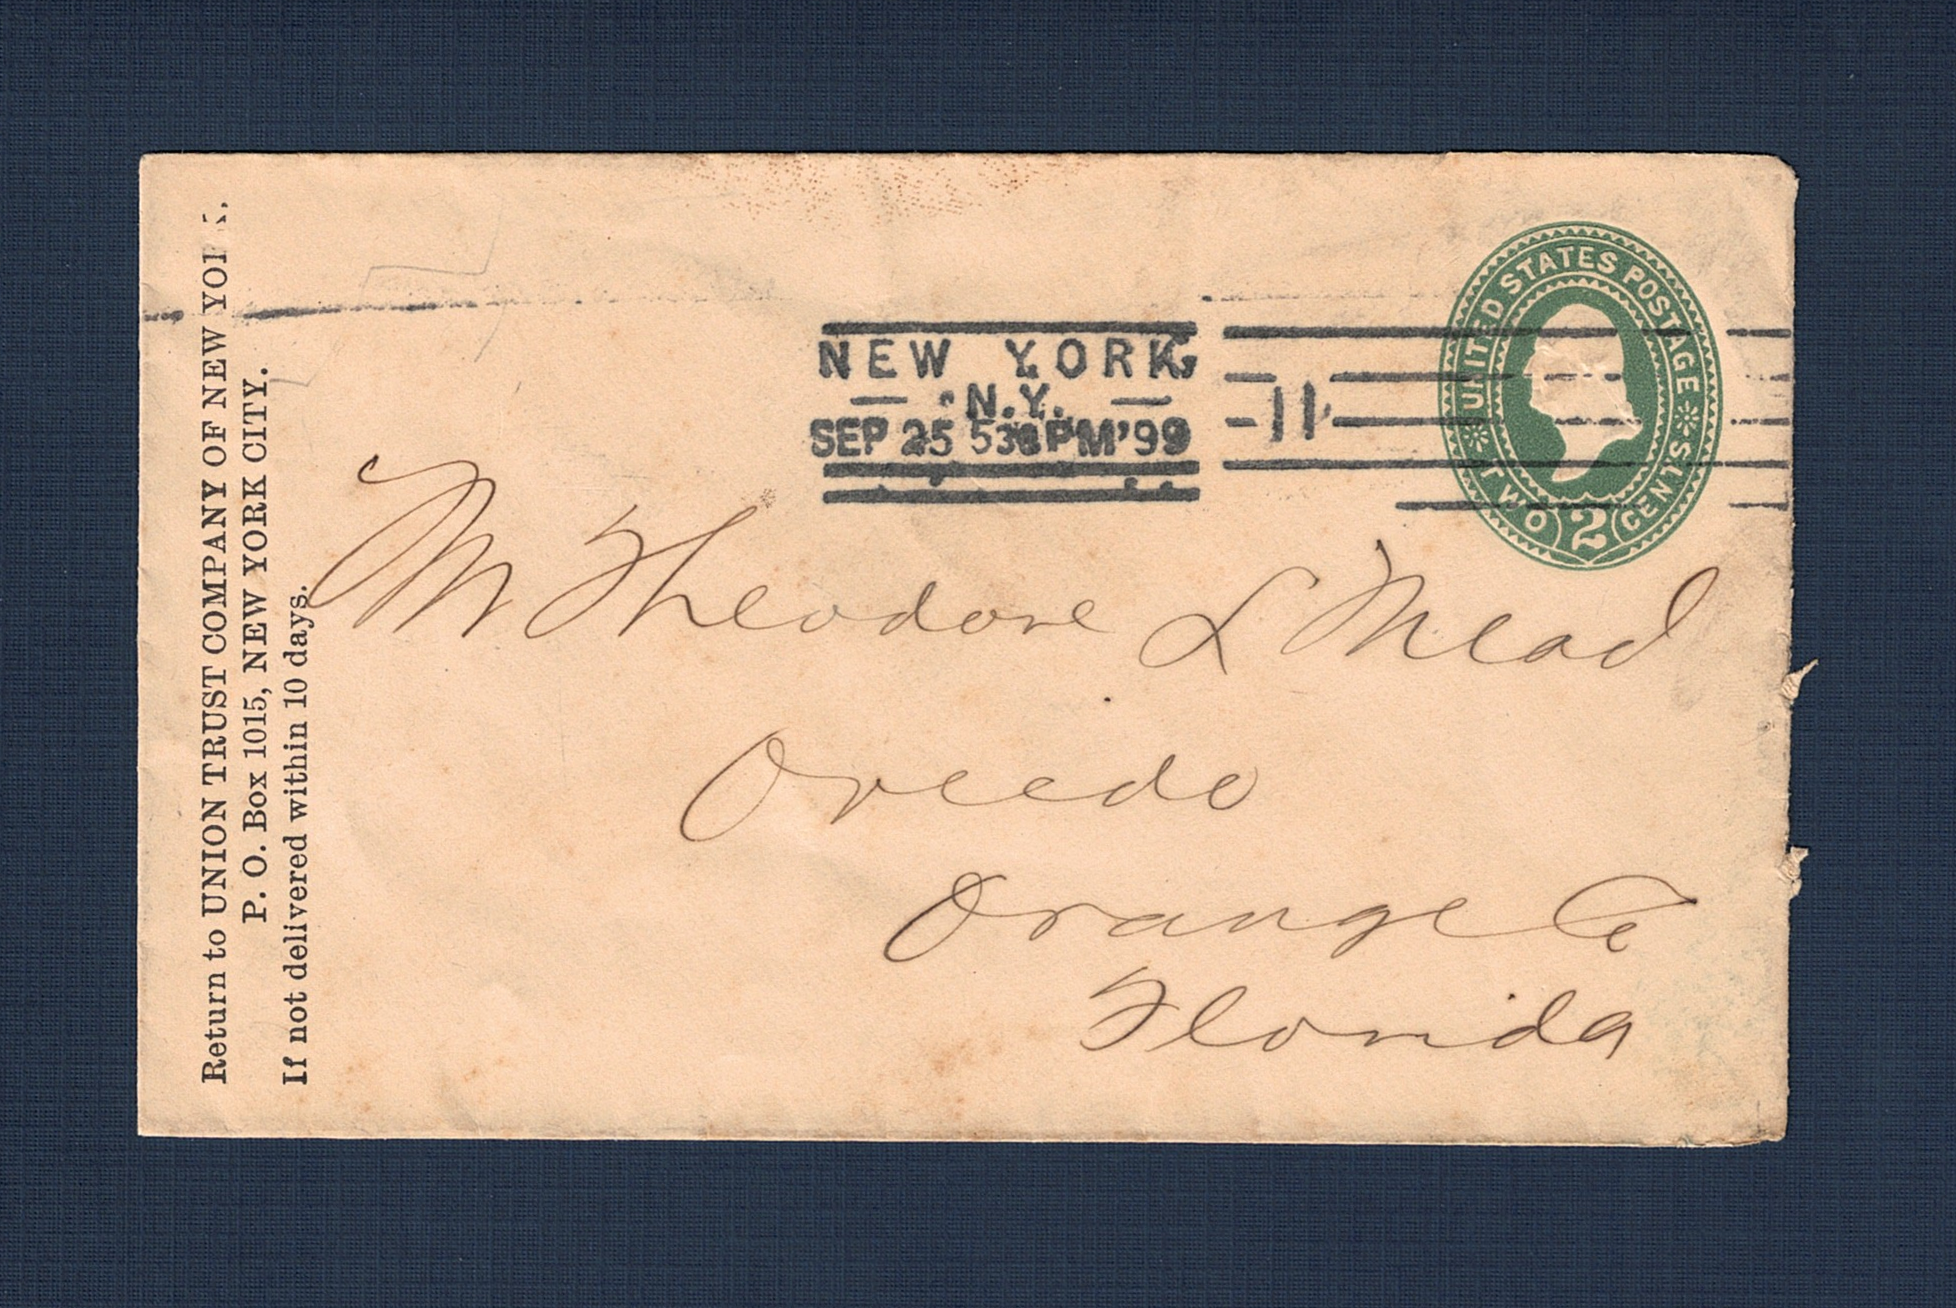 Return to UNION TRUST COMPANY OF NEW YORK.
P. O. Box 1015, NEW YORK CITY.
If not delivered within 10 days.
NEW YORK,
N.Y.
SEP 25 530PM '99
11
UNITED STATES POSTAGE
TWO 2 CENTS
Mr Theodore L Mead
Oviedo
Orange Co
Florida